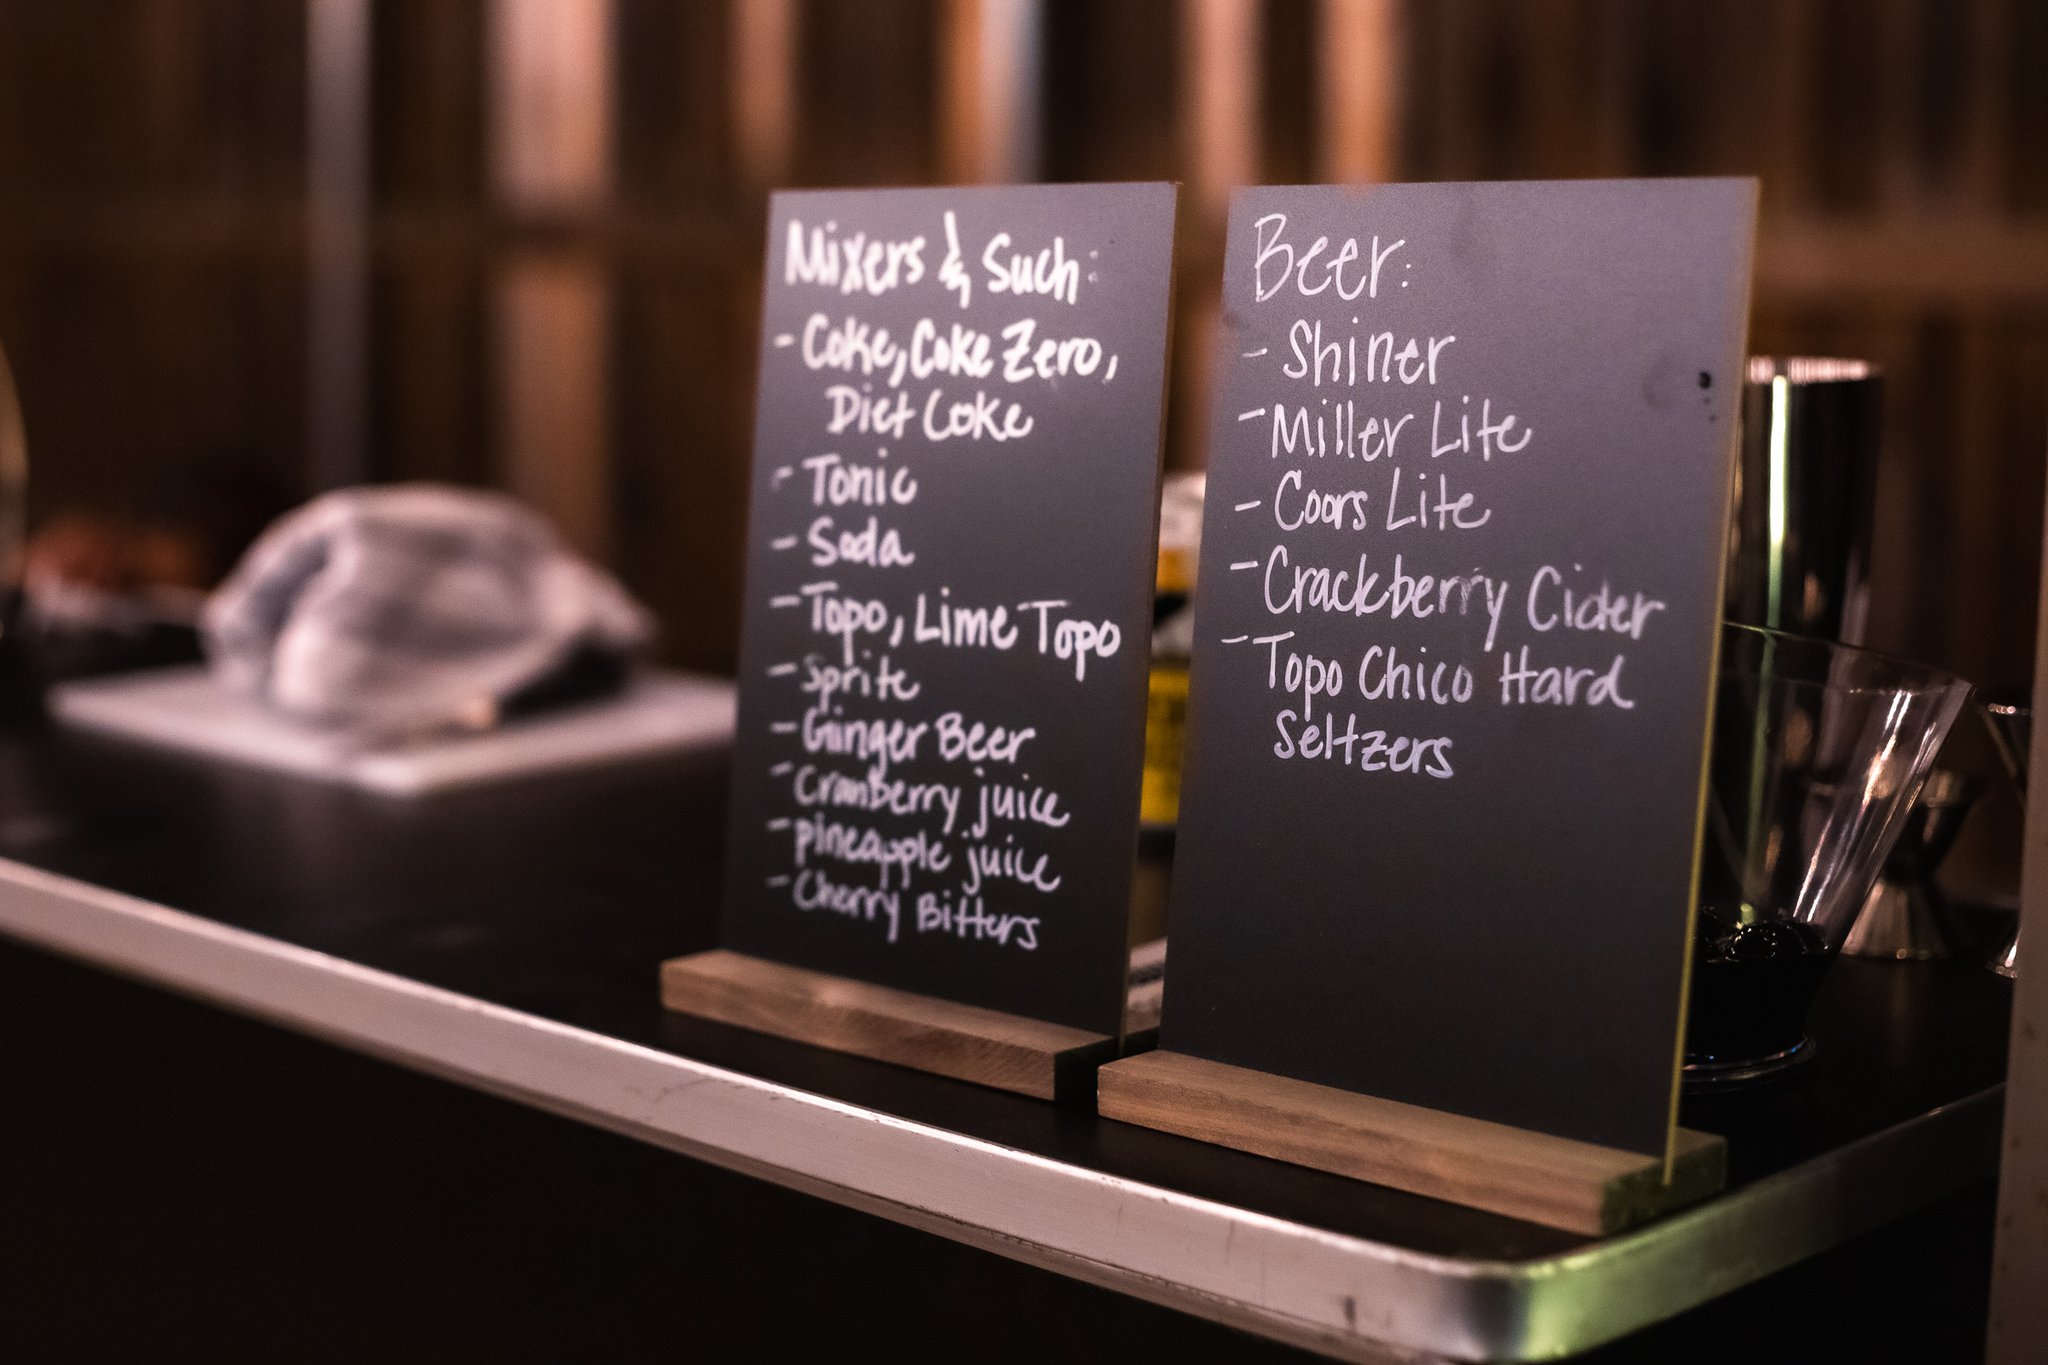 Mixers & Such:
- Coke, Coke Zero,
Diet Coke
- Tonic
- Soda
- Topo, Lime Topo
- Sprite
- Ginger Beer
- Cranberry juice
- pineapple juice
- Cherry Bitters
Beer:
- Shiner
- Miller Lite
- Coors Lite
- Crackberry Cider
- Topo Chico Hard
Seltzers